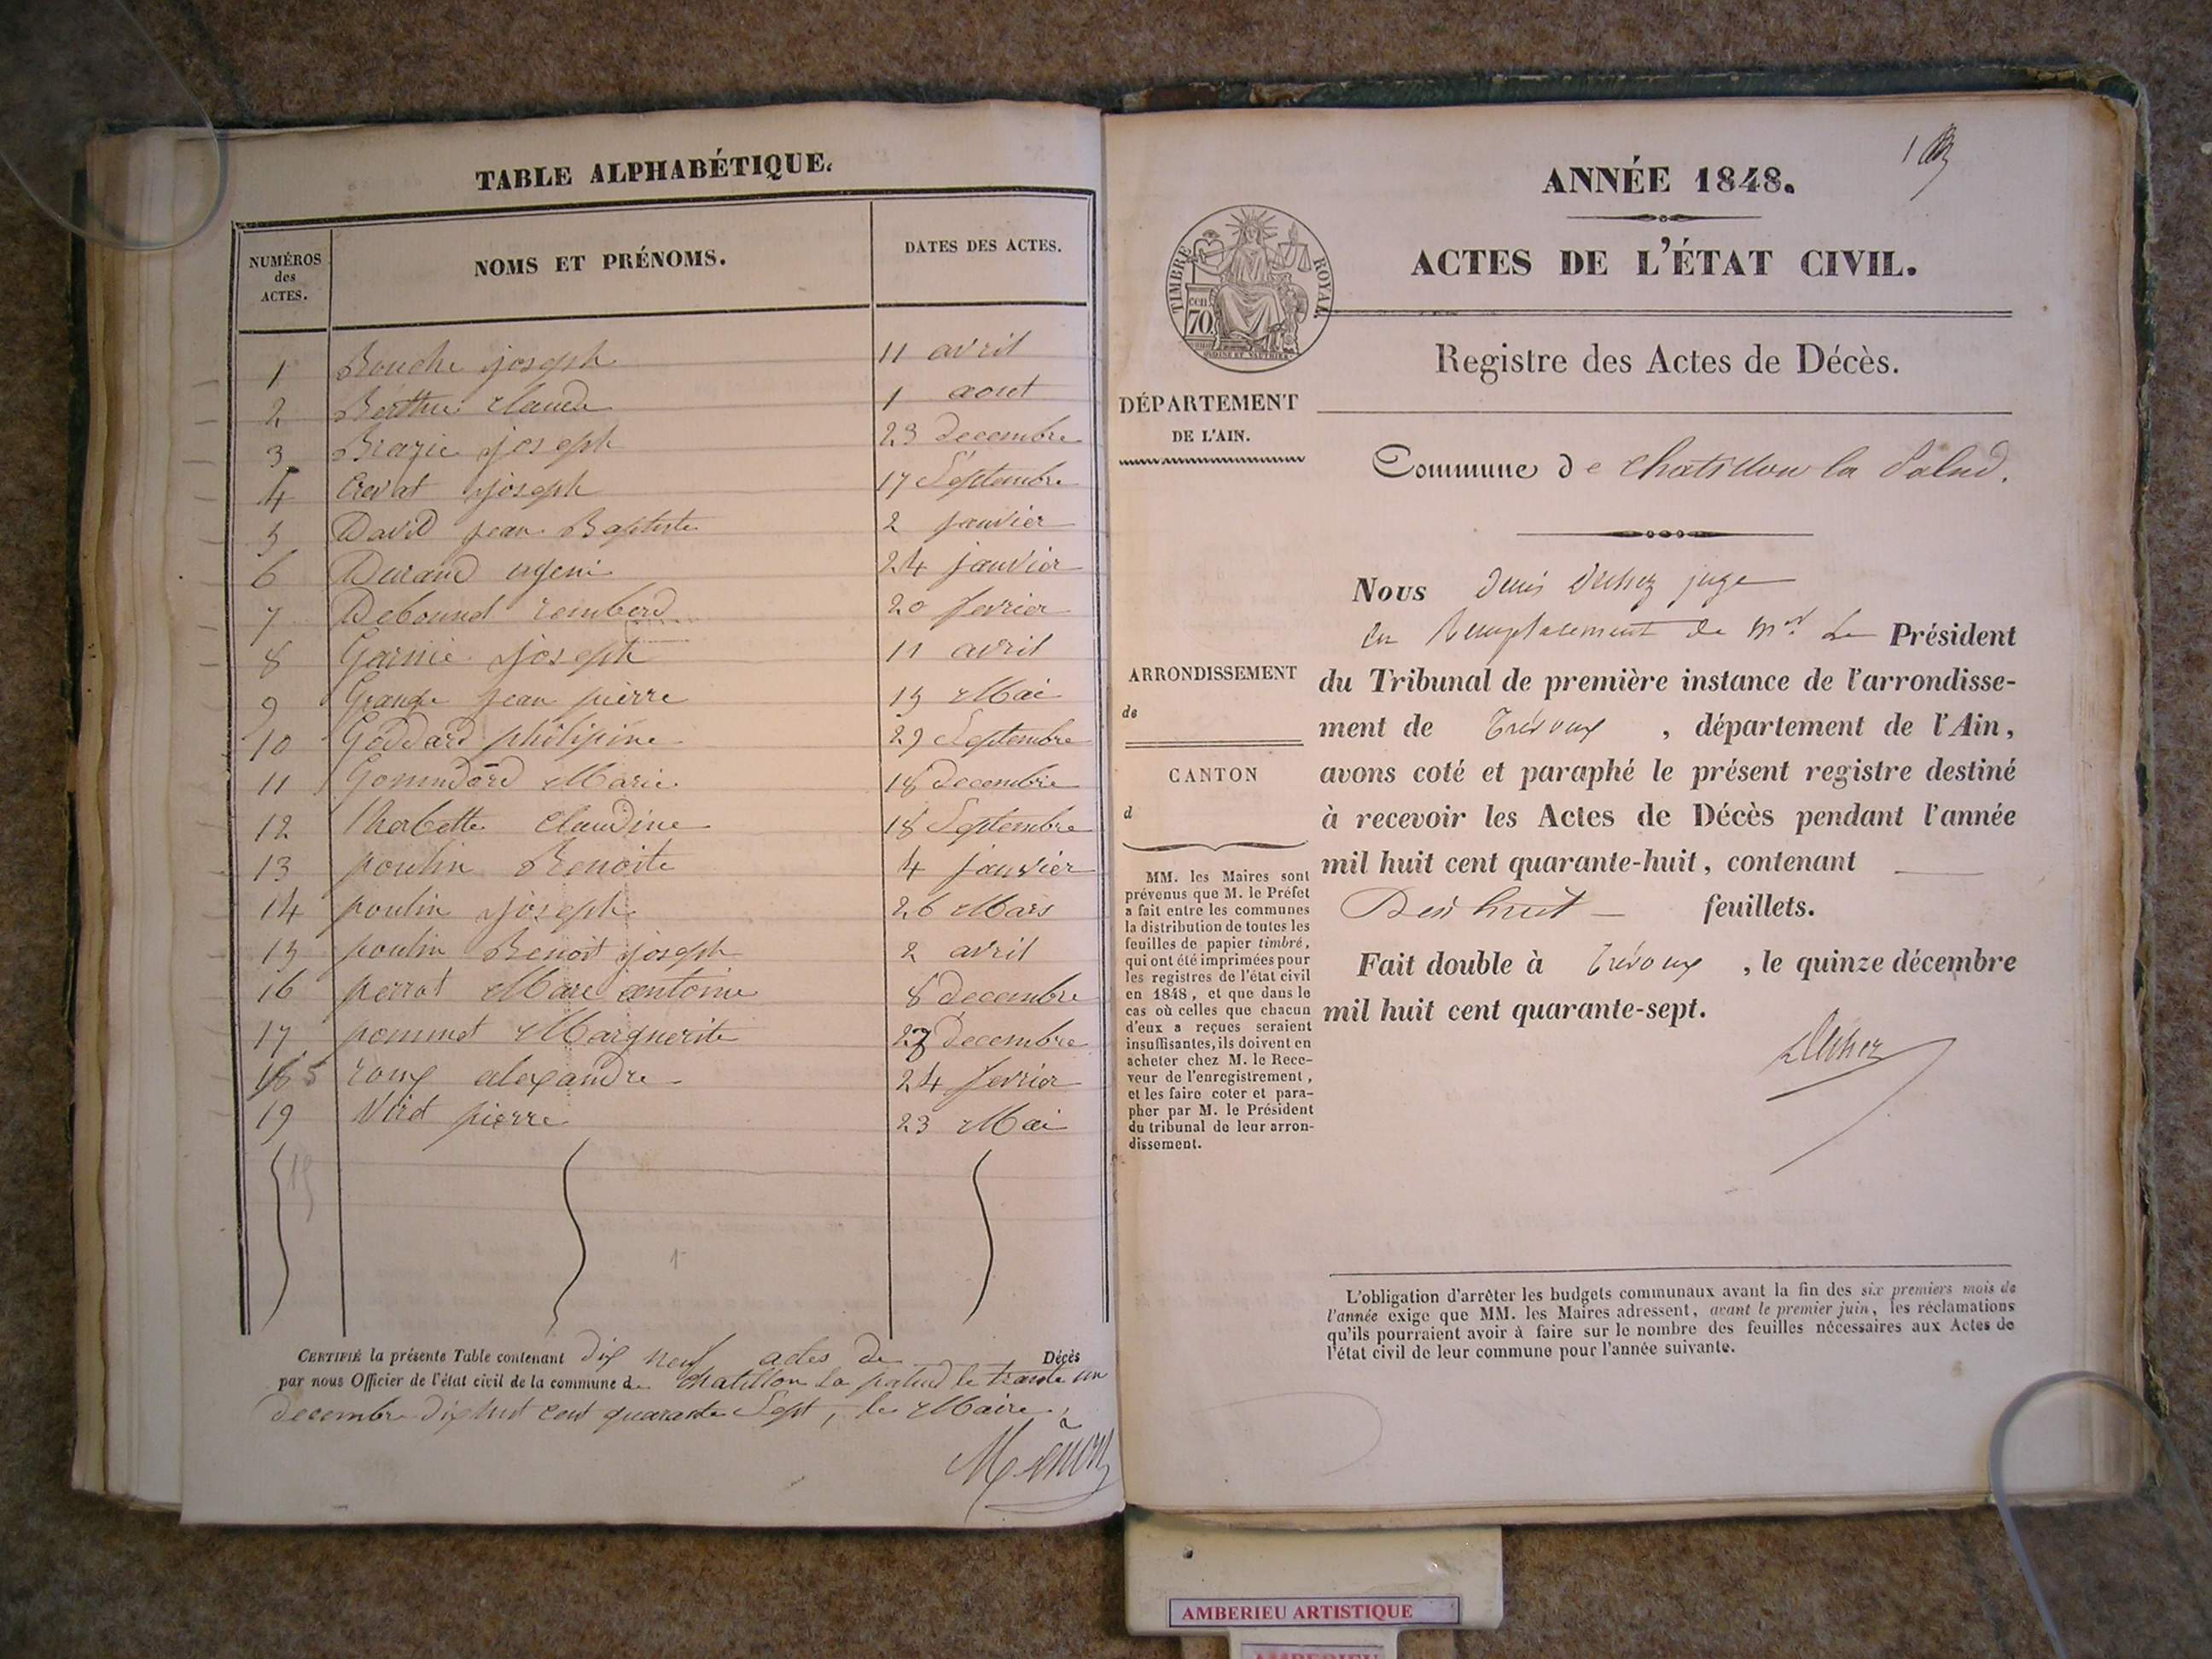 TABLE ALPHABÉTIQUE.
NUMÉROS
des
ACTES.
NOMS ET PRÉNOMS.
DATES DES ACTES.
1 Bouche joseph 11 avril
2 Claude 1 aout
3 joseph 23 decembre
4 Crevat joseph 17 Septembre
5 David jean Baptiste 2 janvier
6 Durand 24 janvier
7 20 fevrier
8 Garnie joseph 11 avril
9 Grange jean pierre 15 Mai
10 Goddard philipine 29 Septembre
11 Marie 18 decembre
12 Claudine 18 Septembre
13 poulin Benoite 4 janvier
14 poulin joseph 26 Mars
15 poulin Benoit joseph 2 avril
16 perrat Marc antoine 8 decembre
17 pommet Marguerite decembre
roux alexandre 24 fevrier
19 pierre 23 Mai
CERTIFIÉ la présente Table contenant dix neuf actes de Décès
par nous Officier de l'état civil de la commune de chatillon La palud le trante un
decembre dix huit cent quarante Sept, le Maire,
ANNÉE 1848.
ACTES DE L'ÉTAT CIVIL.
TIMBRE ROYAL
cen
70
Registre des Actes de Décès.
DÉPARTEMENT
DE L'AIN.
Commune de Chatillon la Palud.
Nous Denis juge
en Remplacement de Mr. Le Président
ARRONDISSEMENT
de
du Tribunal de première instance de l'arrondisse-
ment de Trévoux, département de l'Ain,
CANTON
d
avons coté et paraphé le présent registre destiné
à recevoir les Actes de Décès pendant l'année
mil huit cent quarante-huit, contenant
huit feuillets.
Fait double à Trévoux, le quinze décembre
mil huit cent quarante-sept.
MM. les Maires sont
prévenus que M. le Préfet
a fait entre les communes
la distribution de toutes les
feuilles de papier timbré,
qui ont été imprimées pour
les registres de l'état civil
en 1848, et que dans le
cas où celles que chacun
d'eux a reçues seraient
insuffisantes, ils doivent en
acheter chez M. le Rece-
veur de l'enregistrement,
et les faire coter et para-
pher par M. le Président
du tribunal de leur arron-
dissement.
L'obligation d'arrêter les budgets communaux avant la fin des six premiers mois de
l'année exige que MM. les Maires adressent, avant le premier juin, les réclamations
qu'ils pourraient avoir à faire sur le nombre des feuilles nécessaires aux Actes de
l'état civil de leur commune pour l'année suivante.
AMBERIEU ARTISTIQUE
AMBERIEU